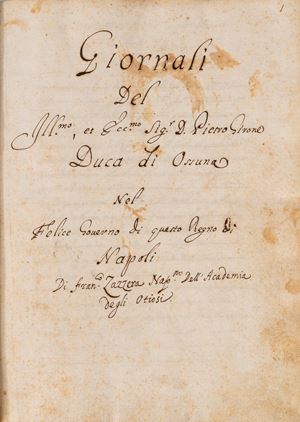 1
Giornali
Del
Ill.mo, et Ecc.mo Sig.r D. Pietro Girone
Duca di Ossuna
Nel
Felice Governo di questo Regno di
Napoli
Di Fran.co Zazzera Nap.no Dell'Academia
degli Otiosi